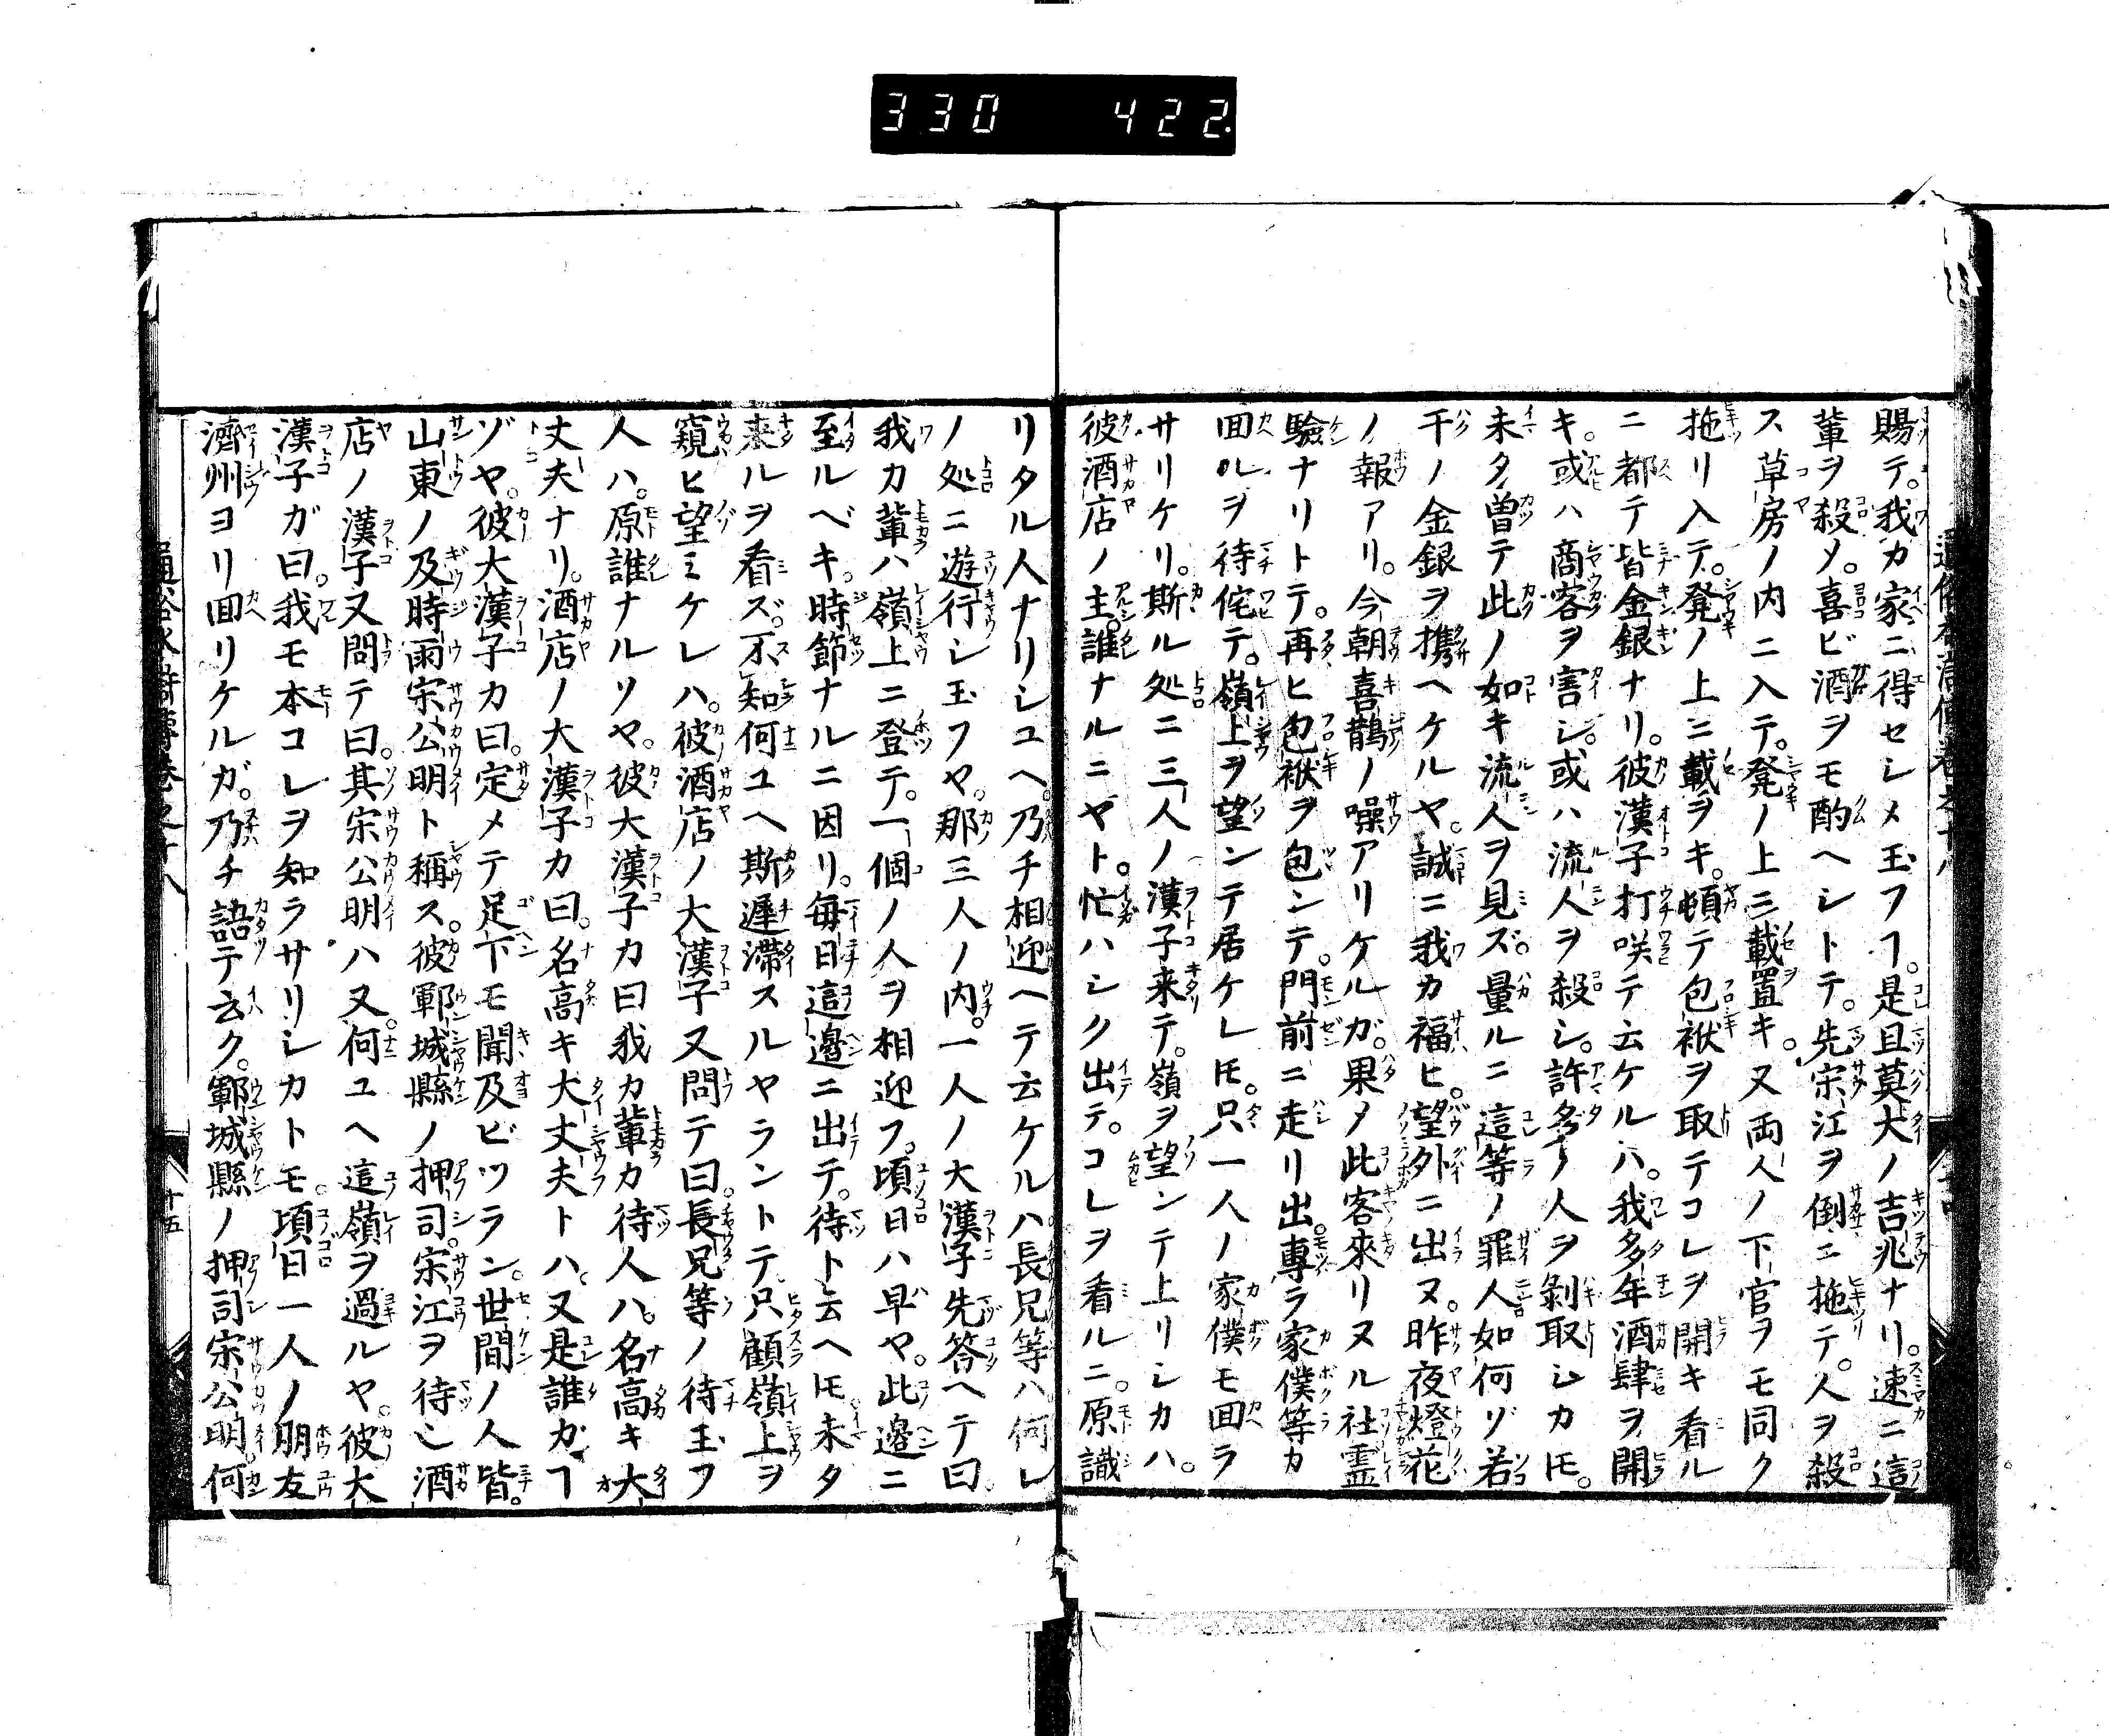 330 422
賜テ。我カ家ニ得セシメ玉フヿ。是且莫大ノ吉兆ナリ。速ニ這
輩ヲ殺〆。喜ビ酒ヲモ酌ヘシトテ。先宋江ヲ倒ニ拖テ。人ヲ殺
ス草房ノ内ニ入テ。凳ノ上ニ載置キ。又両人ノ下官ヲモ同ク
拖リ入テ。凳ノ上ニ載ヲキ。頓テ包袱ヲ取テコレヲ開キ看ル
ニ都テ皆金銀ナリ。彼漢子打咲テ云ケルハ。我多年酒肆ヲ開
キ。或ハ商客ヲ害シ。或ハ流人ヲ殺シ。許多ノ人ヲ剝取シカ𪜈。
未タ曽テ此ノ如キ流人ヲ見ズ。量ルニ這等ノ罪人如何ゾ若
干ノ金銀ヲ携ヘケルヤ。誠ニ我カ福ヒ。望外ニ出ヌ。昨夜燈花
ノ報アリ。今朝喜鵲ノ噪アリケルガ。果〆此客來リヌル社霊
驗ナリトテ。再ヒ包袱ヲ包ンテ。門前ニ走リ出。專ラ家僕等カ
回ルヲ待侘テ。嶺上ヲ望ンテ居ケレ𪜈。只一人ノ家僕モ回ラ
サリケリ。斯ル処ニ三人ノ漢子来テ。嶺ヲ望ンテ上リシカハ。
彼酒店ノ主。誰ナルニヤト。忙ハシク出テ。コレヲ看ルニ。原識
リタル人ナリシユヘ。乃チ相迎ヘテ云ケルハ長兄等ハ何レ
ノ処ニ遊行シ玉フヤ。那三人ノ内。一人ノ大漢子先答ヘテ曰
我カ輩ハ嶺上ニ登テ。一個ノ人ヲ相迎フ。頃日ハ早ヤ。此邉ニ
至ルベキ。時節ナルニ因リ。毎日這邉ニ出テ。待ト云ヘ𪜈。未タ
来ルヲ看ズ。不知何ユヘ斯遲滯スルヤラントテ。只顧嶺上ヲ
窺ヒ望ミケレハ。彼酒店ノ大漢子又問テ曰。長兄等ノ待玉フ
人ハ。原誰ナルソヤ。彼大漢子カ曰我カ輩カ待人ハ。名高キ大
丈夫ナリ。酒店ノ大漢子カ曰。名高キ大丈夫トハ。又是誰カヿ
ゾヤ。彼大漢子カ曰。定メテ足下モ聞及ビツラン。世間ノ人皆。
山東ノ及時雨宋公明ト稱ス。彼鄆城縣ノ押司。宋江ヲ待シ酒
店ノ漢子又問テ曰。其宋公明ハ又。何ユヘ這嶺ヲ過ルヤ。彼大
漢子ガ曰。我モ本コレヲ知ラサリシカトモ。頃日一人ノ朋友
濟州ヨリ回リケルガ。乃チ語テ云ク。鄆城縣ノ押司宋公明。何
通俗水滸傳巻之十八
十五